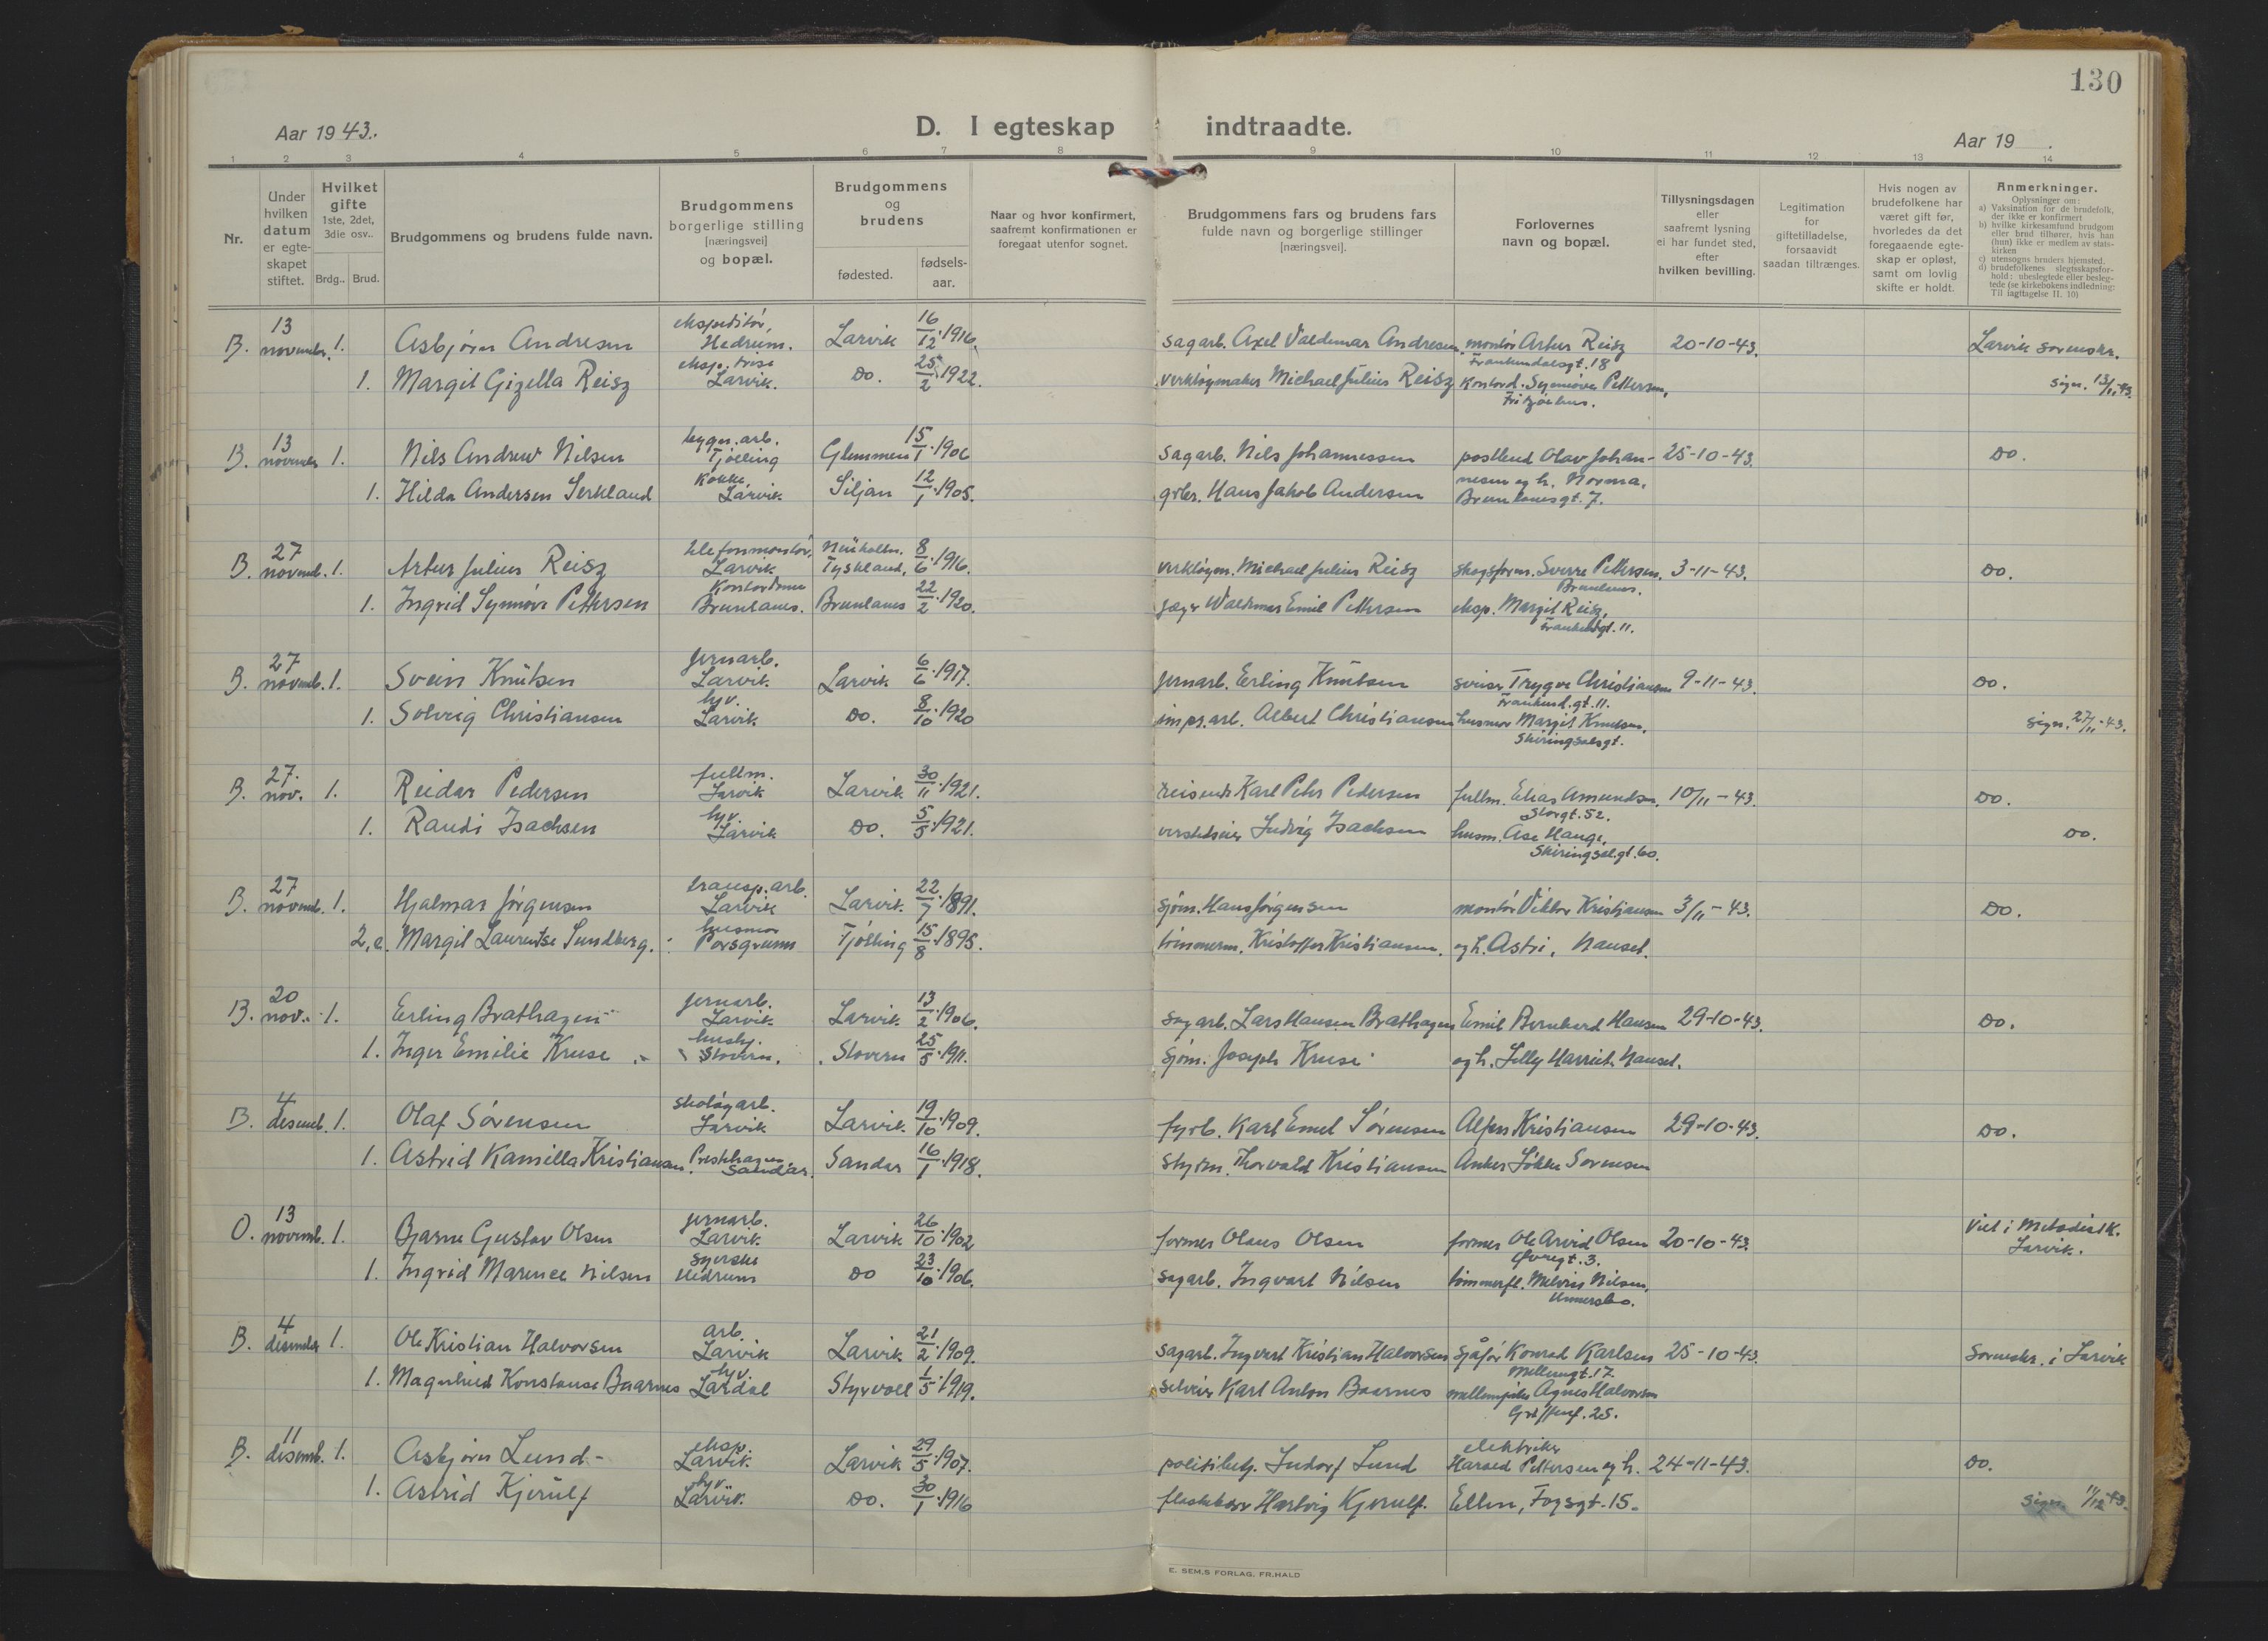 130
Aar 1943.
D. I egteskap indtraadte.
Aar 19 .
1 2 3 4 5 6 7 8 9 10 11 12 13 14
Nr.
Under hvilken datum er egteskapet stiftet.
Hvilket gifte
1ste, 2det, 3die osv..
Brdg.. Brud.
Brudgommens og brudens fulde navn.
Brudgommens borgerlige stilling [næringsvei] og bopæl.
Brudgommens og brudens
fødested.
fødsels-aar.
Naar og hvor konfirmert, saafremt konfirmationen er foregaat utenfor sognet.
Brudgommens fars og brudens fars fulde navn og borgerlige stillinger [næringsvei].
Forlovernes navn og bopæl.
Tillysningsdagen eller saafremt lysning ei har fundet sted, efter hvilken bevilling.
Legitimation for giftetilladelse, forsaavidt saadan tiltrænges.
Hvis nogen av brudefolkene har været gift før, hvorledes da det foregaaende egteskap er opløst, samt om lovlig skifte er holdt.
Anmerkninger.
Oplysninger om:
a) Vaksination for de brudefolk, der ikke er konfirmert
b) hvilke kirkesamfund brudgom eller brud tilhører, hvis han (hun) ikke er medlem av statskirken
c) utensogns bruders hjemsted.
d) brudefolkenes slegtsskapsforhold: ubeslegtede eller beslegtede (se kirkebokens indledning: Til iagttagelse II. 10)
B. 13 november. 1. Asbjørn Andresen ekspeditør, Hedrum. Larvik 16/12.1916. sagarb. Axel Valdemar Andresen. montør Artur Reisz Frankendalsgt. 18 20-10-43. Larvik sorenskr.
1. Margit Gizella Reisz eksp.trise Larvik. Do. 25/2.1922. verktøymaker Michael Julius Reisz Kontord. Synnøve Pettersen, Fritzøehus. sign. 13/11-43.
B. 13 november 1. Nils Andrew Nilsen bygn.arb. Tjølling Glemmen 15/1.1906 sagarb. Nils Johannessen postbud Olav Johan- 25-10-43. Do.
1. Hilda Andersen Serkland Kokke Larvik Siljan 12/1.1905. grbr. Hans Jakob Andersen nesen og h. Norma, Brunlanesgt. 7.
B. 27 novemb. 1. Artur Julius Reisz telefonmontør, Larvik Tyskland, 8/6.1916. verktøym. Michael Julius Reisz skogsform. Sverre Pettersen, Brunlanes. 3-11-43. Do.
1. Ingrid Synnøve Pettersen Kontordame Brunlanes. Brunlanes 22/2.1920. Waldemar Emil Pettersen eksp. Margit Reisz, 11.
B. 27 novemb. 1. Svein Knutsen jernarb. Larvik Larvik 6/6.1917. jernarb. Erling Knutsen sveiser Trygve Christiansen Frankend.gt. 11. 9-11-43. Do.
1. Solveig Christiansen hjv. Larvik Do. 8/10.1920 impr.arb. Albert Christiansen husmor Margit Knutsen, Skiringsalsgt. sign. 27/11-43.
B. 27. nov. 1. Reidar Pedersen fullm. Larvik Larvik 30/11.1921. reisende Karl Peter Pedersen fullm. Elias Amundsen, Storgt. 52. 10/11-43. Do.
1. Randi Isachsen hjv. Larvik Do. 5/5.1921. verksteder Ludvig Isachsen husm. Åse Hauge, Skiringsal.gt. 60. Do.
B. 27 novemb. 1. Hjalmar Jørgensen transp.arb. Larvik Larvik. 22/7.1891. sjøm. Hans Jørgensen montør Viktor Kristiansen 3/11-43. Do.
2, e. Margit Laurentse Sundberg. husmor Porsgrunn Tjølling 15/8.1895. tømmerm. Kristoffer Kristiansen. og h. Astri, Nanset.
B. 20 nov. 1. Erling Brathagen jernarb. Larvik Larvik 13/2.1906. sagarb. Lars Hansen Brathagen Emil Bernhard Hansen 29-10-43. Do.
1. Inger Emilie Kruse hushj. Stavern. Stavern 25/5.1911. sjøm. Joseph Kruse og h. Lilly Harriet Nanset.
B. 4 desemb. 1. Olaf Sørensen skotøyarb. Larvik Larvik 19/10.1909. fyrb. Karl Emil Sørensen Alfer Kristiansen 29-10-43. Do.
1. Astrid Kamilla Kristiansen. Presthagen Sandar. Sandar 16/1.1918. styrm. Thorvald Kristiansen Anker Løkke Sørensen
O. 13 novemb. 1. Bjarne Gustav Olsen jernarb. Larvik Larvik 26/10.1902 former Olaus Olsen former Ole Arvid Olsen Øvregt. 3. 20-10-43. Viet i Metodistk. Larvik.
1. Ingrid Marence Nilsen syerske Hedrum Do 23/10.1906. sagarb. Ingvart Nilsen tømmerfl. Melvin Nilsen,
B. 4 desember 1. Ole Kristian Halvorsen arb. Larvik Larvik 21/2.1909. sagarb. Ingvert Kristian Halvorsen sjåfør Konrad Karlsen Mellemgt. 17 25-10-43. Sorenskr. i Larvik
1. Magnhild Konstanse Baarnes hjv. Lardal Styrvoll 1/5.1919. selveier Karl Anton Baarnes Agnes Halvorsen 25.
B. 11 desemb. 1. Asbjørn Lund eksp. Larvik. Larvik 29/5.1907. politibetj. Ludorf Lund elektriker Harald Pettersen og h. 24-11-43. Do.
1. Astrid Kjerulf hjv. Larvik. Do. 30/1.1916 Hartvig Kjerulf. Ellen, Fogsgt. 15. sign. 11/12-43.
E. SEM.S FORLAG, FR.HALD